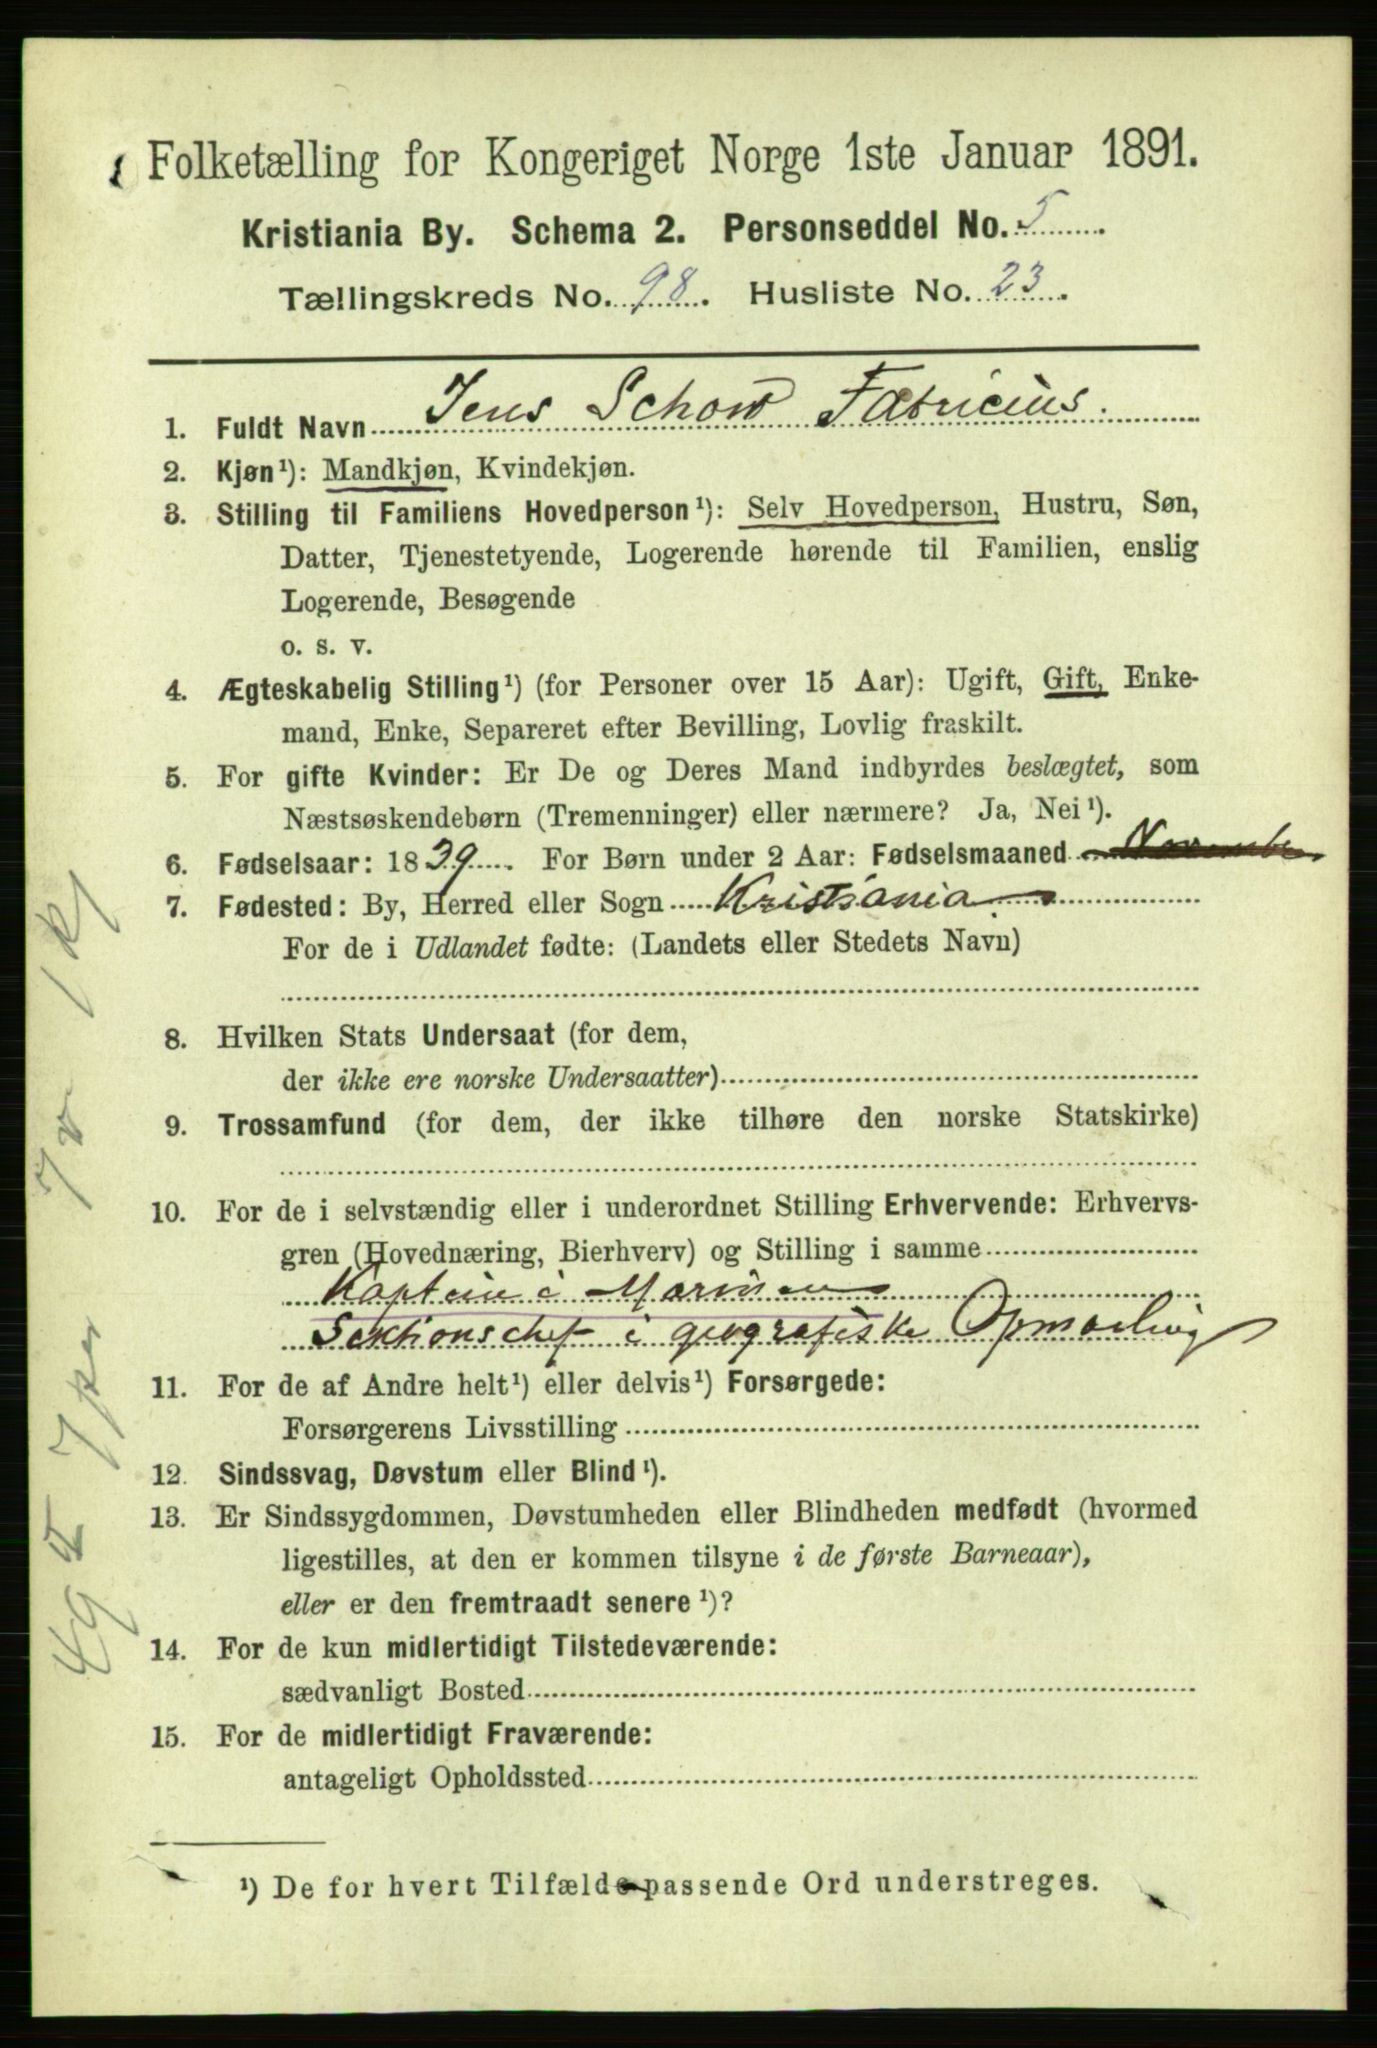 Folketælling for Kongeriget Norge 1ste Januar 1891.
Kristiania By. Schema 2. Personseddel No. 5
Tællingskreds No. 98. Husliste No. 23.
1. Fuldt Navn Jens Schow Fabricius.
2. Kjøn¹): Mandkjøn, Kvindekjøn.
3. Stilling til Familiens Hovedperson¹): Selv Hovedperson, Hustru, Søn,
Datter, Tjenestetyende, Logerende hørende til Familien, enslig
Logerende, Besøgende
o. s. v.
4. Ægteskabelig Stilling¹) (for Personer over 15 Aar): Ugift, Gift, Enke-
mand, Enke, Separeret efter Bevilling, Lovlig fraskilt.
5. For gifte Kvinder: Er De og Deres Mand indbyrdes beslægtet, som
Næstsøskendebørn (Tremenninger) eller nærmere? Ja, Nei¹).
6. Fødselsaar: 1839. For Børn under 2 Aar: Fødselsmaaned November
7. Fødested: By, Herred eller Sogn Kristiania
For de i Udlandet fødte: (Landets eller Stedets Navn)
8. Hvilken Stats Undersaat (for dem,
der ikke ere norske Undersaatter)
9. Trossamfund (for dem, der ikke tilhøre den norske Statskirke)
10. For de i selvstændig eller i underordnet Stilling Erhvervende: Erhvervs-
gren (Hovednæring, Bierhverv) og Stilling i samme
Kaptein i Marinen
Sektionschef i geografiske Opmaaling
11. For de af Andre helt¹) eller delvis¹) Forsørgede:
Forsørgerens Livsstilling
12. Sindssvag, Døvstum eller Blind¹).
13. Er Sindssygdommen, Døvstumheden eller Blindheden medfødt (hvormed
ligestilles, at den er kommen tilsyne i de første Barneaar),
eller er den fremtraadt senere¹)?
14. For de kun midlertidigt Tilstedeværende:
sædvanligt Bosted
15. For de midlertidigt Fraværende:
antageligt Opholdssted
¹) De for hvert Tilfælde passende Ord understreges.